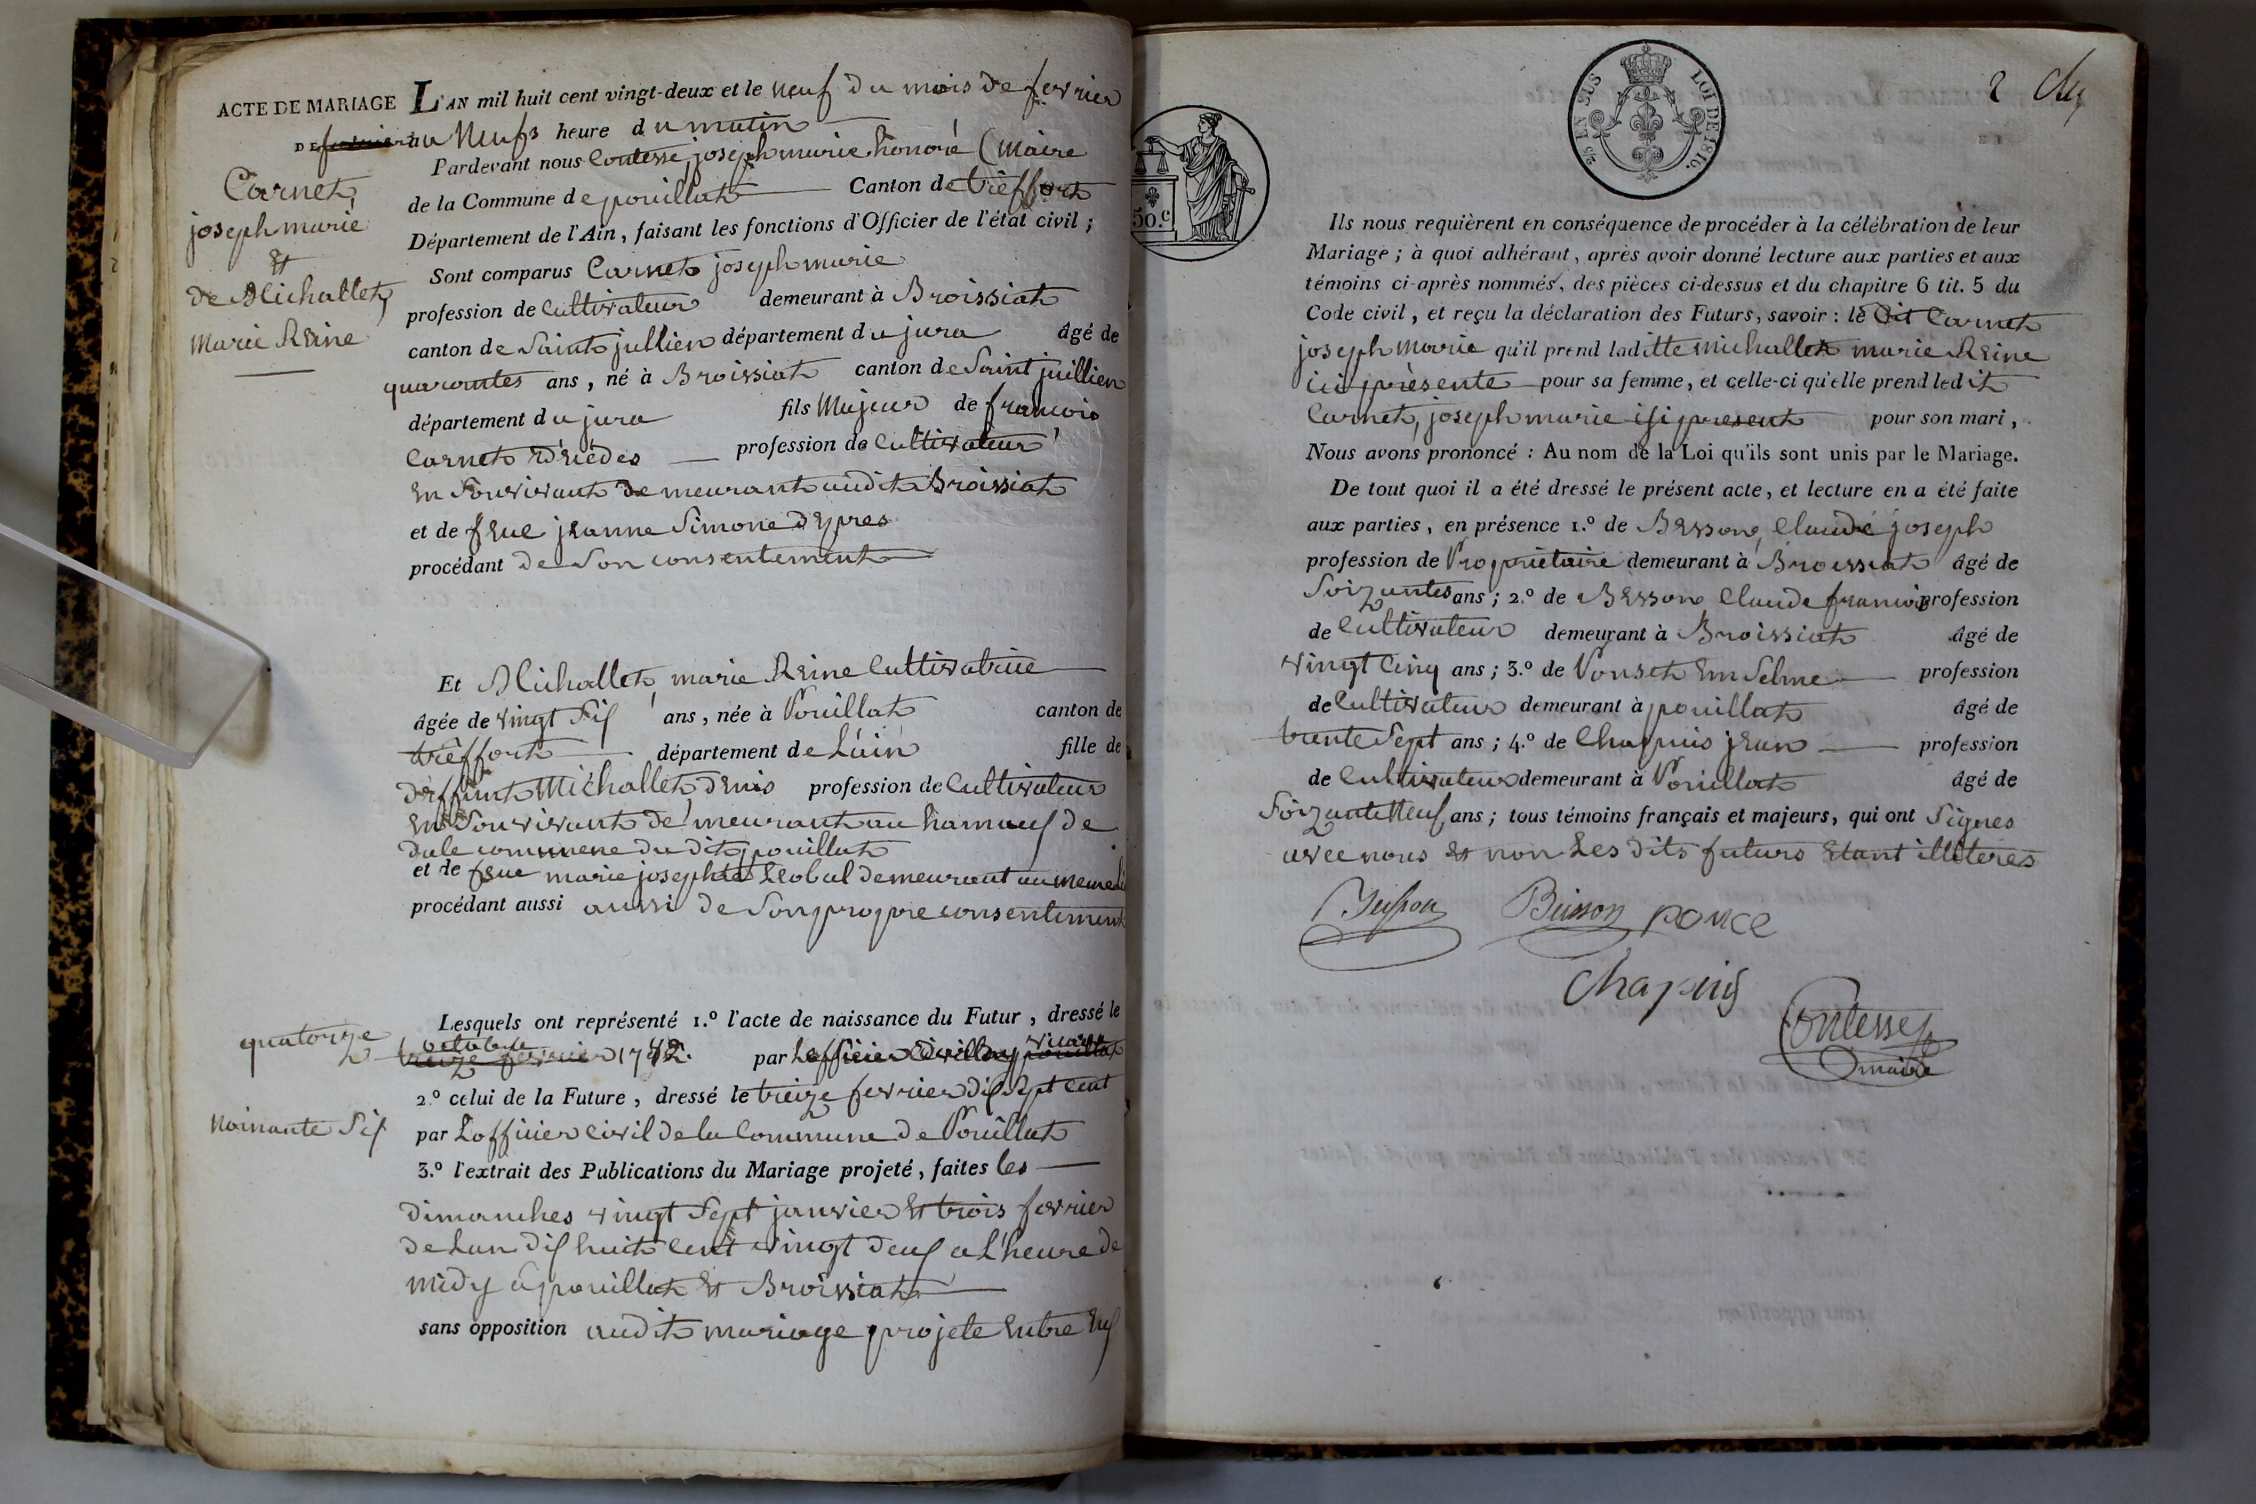 ACTE DE MARIAGE
DE
Carnet
joseph marie
et
de Michallet
marie Reine
L'AN mil huit cent vingt-deux et le neuf du mois de fevrier
au Neuf heure du matin
Pardevant nous Contesse joseph marie honoré Maire
de la Commune de pouillat Canton de trèffort
Département de l'Ain, faisant les fonctions d'Officier de l'état civil ;
Sont comparus Carnet joseph marie
profession de Cultivateur demeurant à Broissiat
canton de Saint jullien département du jura âgé de
quarantes ans, né à Broissiat canton de Saint juillien
département du jura fils Majeur de francois
Carnet profession de Cultivateur
En Son vivant demeurant audit Broissiat
et de feue jeanne Simone
procédant de Son consentement
Et Michallet marie Reine Cultivatrice
âgée de vingt Six ans, née à Pouillat canton de
trèffort département de L'ain fille de
deffunt Michallet denis profession de Cultivateur
En Son vivant demeurant au hamauf de
commune du dit pouillat
et de feue marie josephte demeurant au meme
procédant aussi aussi de Son propre consentement
Lesquels ont représenté 1.º l'acte de naissance du Futur, dressé le
quatorze
octobre
treize fevrier par Lofficier Civil
2.º celui de la Future, dressé le treize fevrier dix Sept cent
noinante Six
par Lofficier Civil de la Commune de Pouillat
3.º l'extrait des Publications du Mariage projeté, faites les
dimanches vingt Sept janvier et trois fevrier
de Lan dix huit cent vingt deux a L'heure de
midy a pouillat et Broissiat
sans opposition audit mariage projete Entre Eux
50.c
2
EN SUS
LOI DE 1816.
Ils nous requièrent en conséquence de procéder à la célébration de leur
Mariage ; à quoi adhérant, après avoir donné lecture aux parties et aux
témoins ci-après nommés, des pièces ci-dessus et du chapitre 6 tit. 5 du
Code civil, et reçu la déclaration des Futurs, savoir : le Dit Carnet
joseph marie qu'il prend laditte michallet marie Reine
ici présente pour sa femme, et celle-ci qu'elle prend ledit
Carnet, joseph marie isi present pour son mari,
Nous avons prononcé : Au nom de la Loi qu'ils sont unis par le Mariage.
De tout quoi il a été dressé le présent acte, et lecture en a été faite
aux parties, en présence 1.º de Besson, Claude joseph
profession de Propriétaire demeurant à Broissiat âgé de
Soizantes ans ; 2.º de Besson Claude francois profession
de Cultivateur demeurant à Broissiat âgé de
vingt Cinq ans ; 3.º de Ponset Enselme profession
de Cultivateur demeurant à pouillat âgé de
trente Sept ans ; 4.º de Chapuis jean profession
de Cultivateur demeurant à Pouillat âgé de
Soizante Neuf ans ; tous témoins français et majeurs, qui ont Signes
avec nous et non Les dits futurs Etant illiteres
Buisson ponce
Chapuis
Contesse
maire